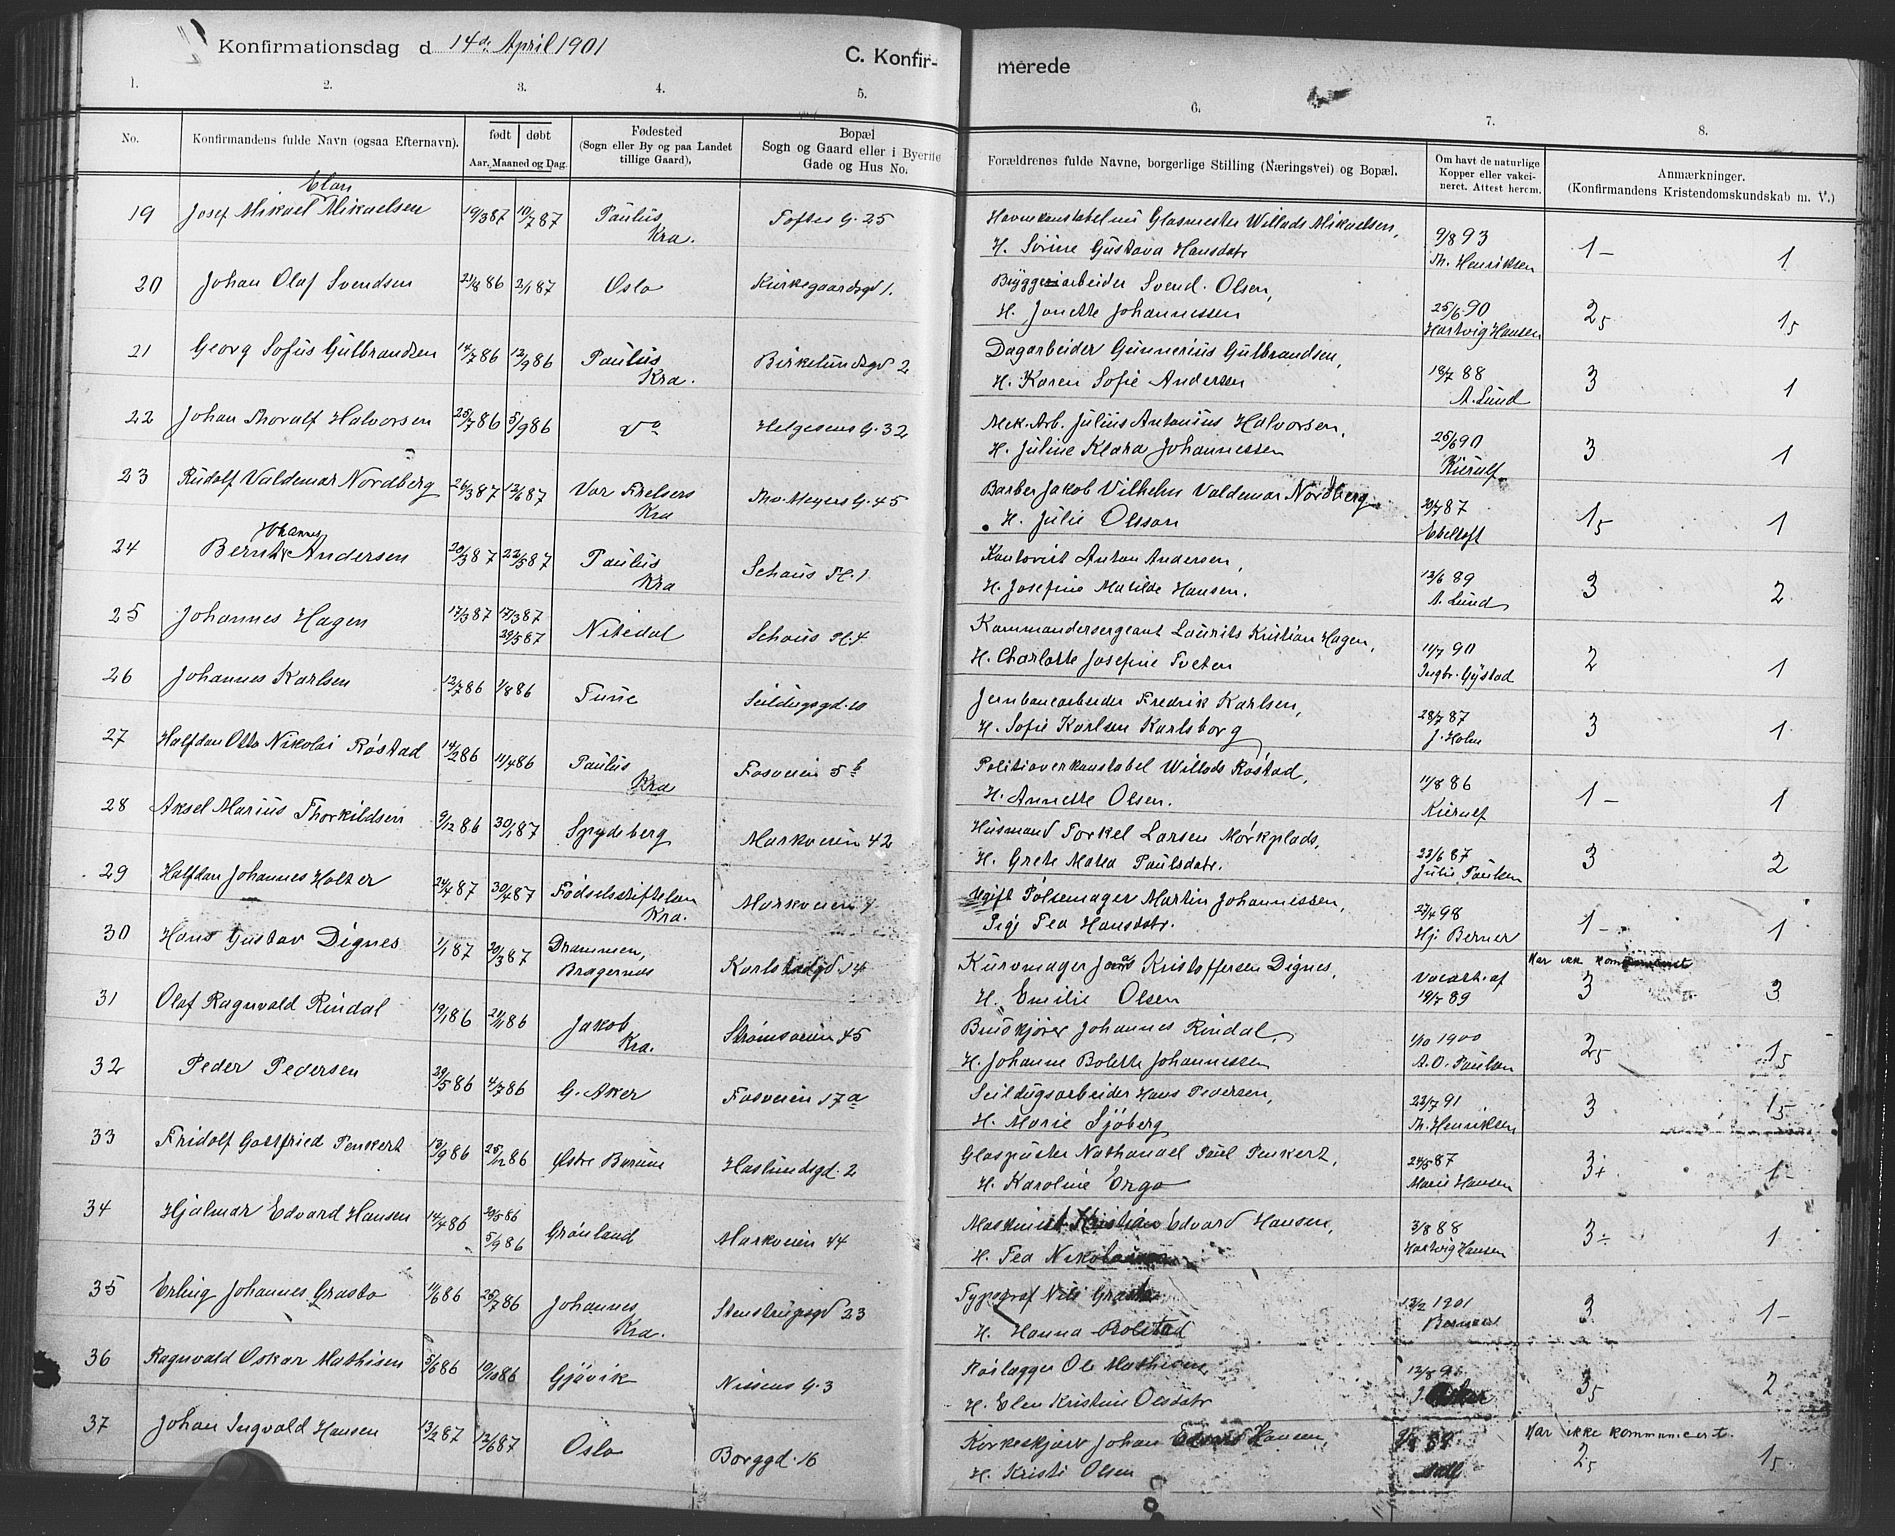 Konfirmationsdag d 14de April 1901
C. Konfir-
merede
1. 2. 3. 4. 5. 6. 7. 8.
No.
Konfirmandens fulde Navn (ogsaa Efternavn).
født døbt
Aar, Maaned og Dag.
Fødested
(Sogn eller By og paa Landet
tillige Gaard).
Bopæl
Sogn og Gaard eller i Byerne
Gade og Hus No.
Forældrenes fulde Navne, borgerlige Stilling (Næringsvei) og Bopæl.
Om havt de naturlige
Kopper eller vakci-
neret. Attest herom.
Anmærkninger.
(Konfirmandens Kristendomskundskab m. V.)
19 Josef Mikael Elan Mikaelsen 19/3 87 10/7 87 Paulus Kra. Toftes G. 25
Glasmester Willads Mikaelsen,
H. Sørine Gustava Hansdatr
9/8 93 Th. Henriksen 1- 1
20 Johan Olaf Svendsen 21/8 86 2/1 87 Oslo Kirkegaardsgd 1.
Bryggeriarbeider Svend Olsen,
H. Jonette Johannessen
25/6 90 Hartvig Hansen 25 15
21 Georg Sofus Gulbrandsen 14/7 86 12/9 86 Paulus Kra. Birkelundsgd 2
Dagarbeider Gunnerius Gulbrandsen,
H. Karen Sofie Andersen
18/7 88 A. Lund 3 1
22 Johan Thoralf Halvorsen 25/7 86 5/9 86 do Helgesens G. 32
Mek. Arb. Julius Antonius Halvorsen,
H. Juline Klara Johannessen
25/6 90 Kierulf 3 1
23 Rudolf Valdemar Nordberg 26/3 87 12/6 87 Vor Frelsers Kra Thv. Meyers G. 45
Barber Jakob Vilhelm Valdemar Nordberg
H. Julie Olsson
20/7 87 Ebeltoft 15 1
24 Bernt Johannes Andersen 20/3 87 22/5 87 Paulus Kra Schous Pl. 1
Kontorist Anton Andersen,
H. Josefine Matilde Hansen.
13/6 89 A. Lund 3 2
25 Johannes Hagen 17/3 87 17/3 87 29/5 87 Nitedal Schous Pl. 4
Kommandersergeant Laurits Kristian Hagen,
H. Charlotte Josefine Tveten
11/7 90 Ingbr. Gystad 2 1
26 Johannes Karlsen 12/7 86 1/8 86 Tune Seildugsgd. 10
Jernbanearbeider Fredrik Karlsen,
H. Sofie Karlsen Karlsborg
28/7 87 J. Holm 3 1
27 Halfdan Otto Nikolai Røstad 14/2 86 11/4 86 Paulus Kra Fosveien 5 b
Politioverkonstabel Willads Røstad,
H. Annette Olsen.
11/8 86 Kierulf 1- 1
28 Aksel Marius Thorkildsen 9/12 86 30/1 87 Spydeberg Markveien 42
Husmand Torkel Larsen Mørkplads,
H. Grete Matea Paulsdatr.
22/6 87 Julie Paulsen 3 2
29 Halfdan Johannes Holter 24/4 87 30/4 87 Fødselsstiftelsen Kra. Markveien
Ugift Pølsemager Martin Johannessen,
Pige Tea Hansdatr.
27/4 98 Hj. Berner 1- 1
30 Hans Gustav Dignes 1/1 87 20/3 87 Drammen, Bragernæs Karlstadgd 14
Kurvmager Jens Kristoffersen Dignes,
H. Emilie Olsen
Vaccatt. af 19/7 89 Har ikke kommuniceret 3 3
31 Olaf Ragnvald Rindal 19/1 86 21/11 86 Jakob Kra. Strømsveien 45
Budkjører Johannes Rindal,
H. Johanne Bolette Johannessen
1/10 1900 A. O. Paulsen 25 15
32 Peder Pedersen 29/5 86 4/7 86 G. Aker Fosveien 17a
Seildugsarbeider Hans Pedersen,
H. Marie Sjøberg
23/7 91 Th. Henriksen 3 15
33 Fridolf Gottfried Penkert 13/9 86 25/12 86 Østre Bærum Haslundsgd. 2
Glaspuster Nathanael Paul Penkert,
H. Karoline Engø
24/5 87 Marie Hansen 3+ 1-
34 Hjalmar Edvard Hansen 14/4 86 20/5 86 5/9 86 Grønland Markveien 44
Maskinist Kristian Edvard Hansen,
H. Tea
3/8 88 Hartvig Hansen 3÷ 1
35 Erling Johannes Grasbo 11/6 86 25/7 86 Johannes Kra. Stenstrupsgd 23
Typograf Nils
H. Hanna Rolstad
13/2 1901 3 1-
36 Ragnvald Oskar Mathisen 5/6 86 10/10 86 Gjøvik Nissens G. 3
Rørlægger Ole Mathisen
H. Elen Kristine Olsdatr
35 2
37 Johan Ingvald Hansen 13/2 87 12/6 87 Oslo Borggd. 16
Kørkeskjærer Johan Edvard Hansen,
H. Kristi Olsen
Har ikke kommunicert. 25 15